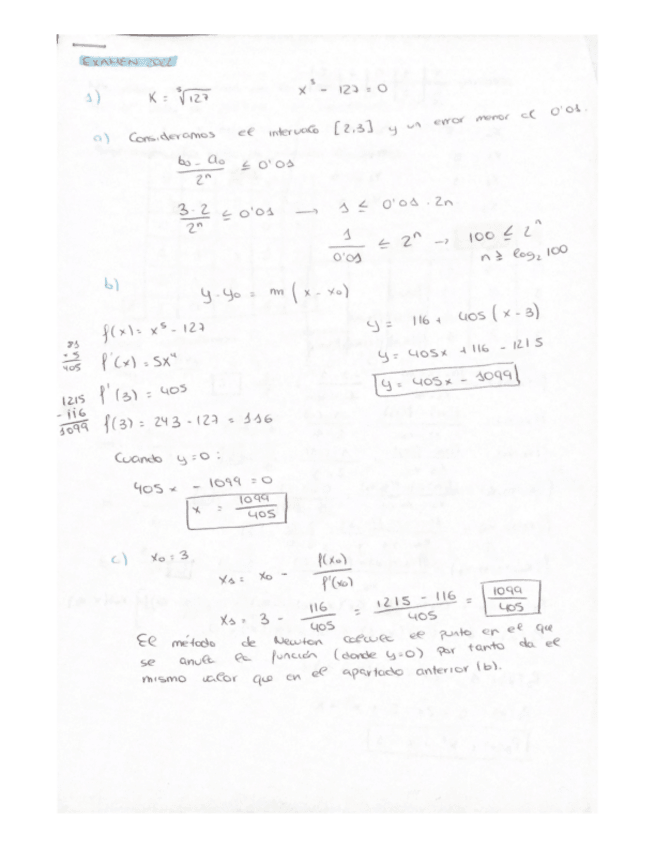 EXAMEN 2022
1) K = ⁵√127 x⁵ - 127 = 0
a) Consideramos el intervalo [2,3] y un error menor al 0'01.
b₀ - a₀ / 2ⁿ ≤ 0'01
3 - 2 / 2ⁿ ≤ 0'01 → 1 ≤ 0'01 · 2n
1 / 0'01 ≤ 2ⁿ → 100 ≤ 2ⁿ
n ≥ log₂ 100
b) y - y₀ = m (x - x₀)
f(x) = x⁵ - 127
f'(x) = 5x⁴
f'(3) = 405
f(3) = 243 - 127 = 116
81
· 5
405
1215
- 116
1099
y = 116 + 405 (x - 3)
y = 405x + 116 - 1215
y = 405x - 1099
Cuando y = 0:
405x - 1099 = 0
x = 1099 / 405
c) x₀ = 3
x₁ = x₀ - f(x₀) / f'(x₀)
x₁ = 3 - 116 / 405 = 1215 - 116 / 405 = 1099 / 405
El método de Newton calcula el punto en el que
se anula la función (donde y=0) por tanto da el
mismo valor que en el apartado anterior (b).